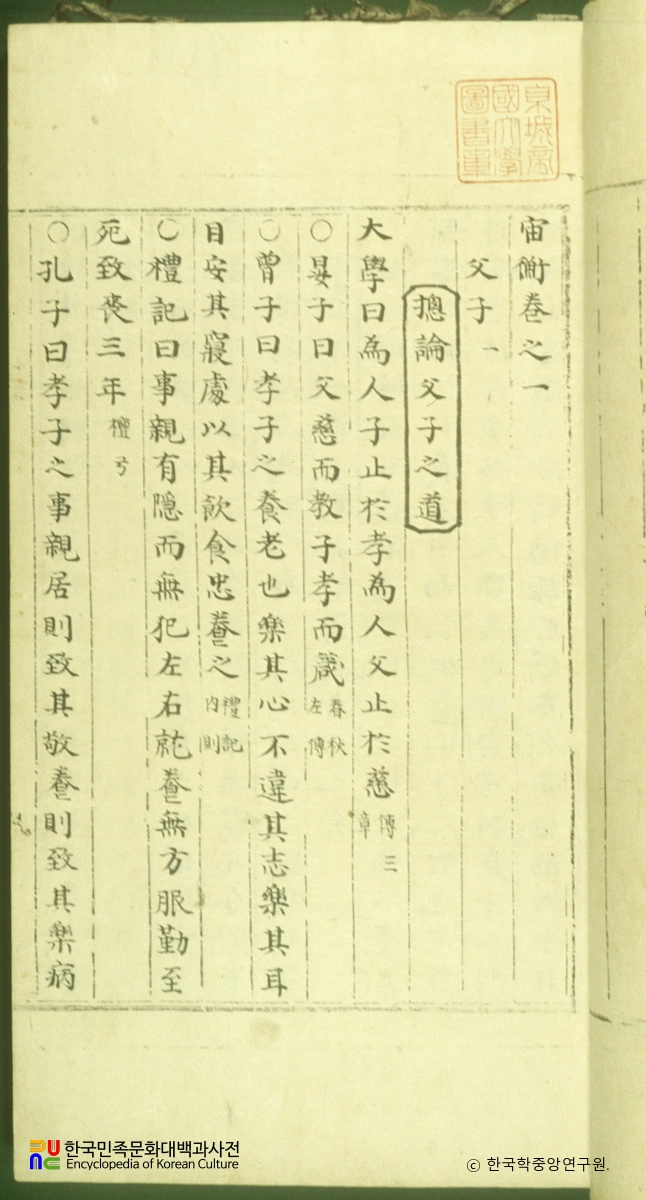 京城帝
國大學
圖書章
宙衡卷之一
父子一
摠論父子之道
大學曰為人子止於孝為人父止於慈傳三章
○晏子曰父慈而教子孝而箴春秋左傳
○曾子曰孝子之養老也樂其心不違其志樂其耳
目安其寢處以其飲食忠養之禮記內則
○禮記曰事親有隱而無犯左右就養無方服勤至
死致喪三年檀弓
○孔子曰孝子之事親居則致其敬養則致其樂病
한국민족문화대백과사전
Encyclopedia of Korean Culture
ⓒ 한국학중앙연구원.